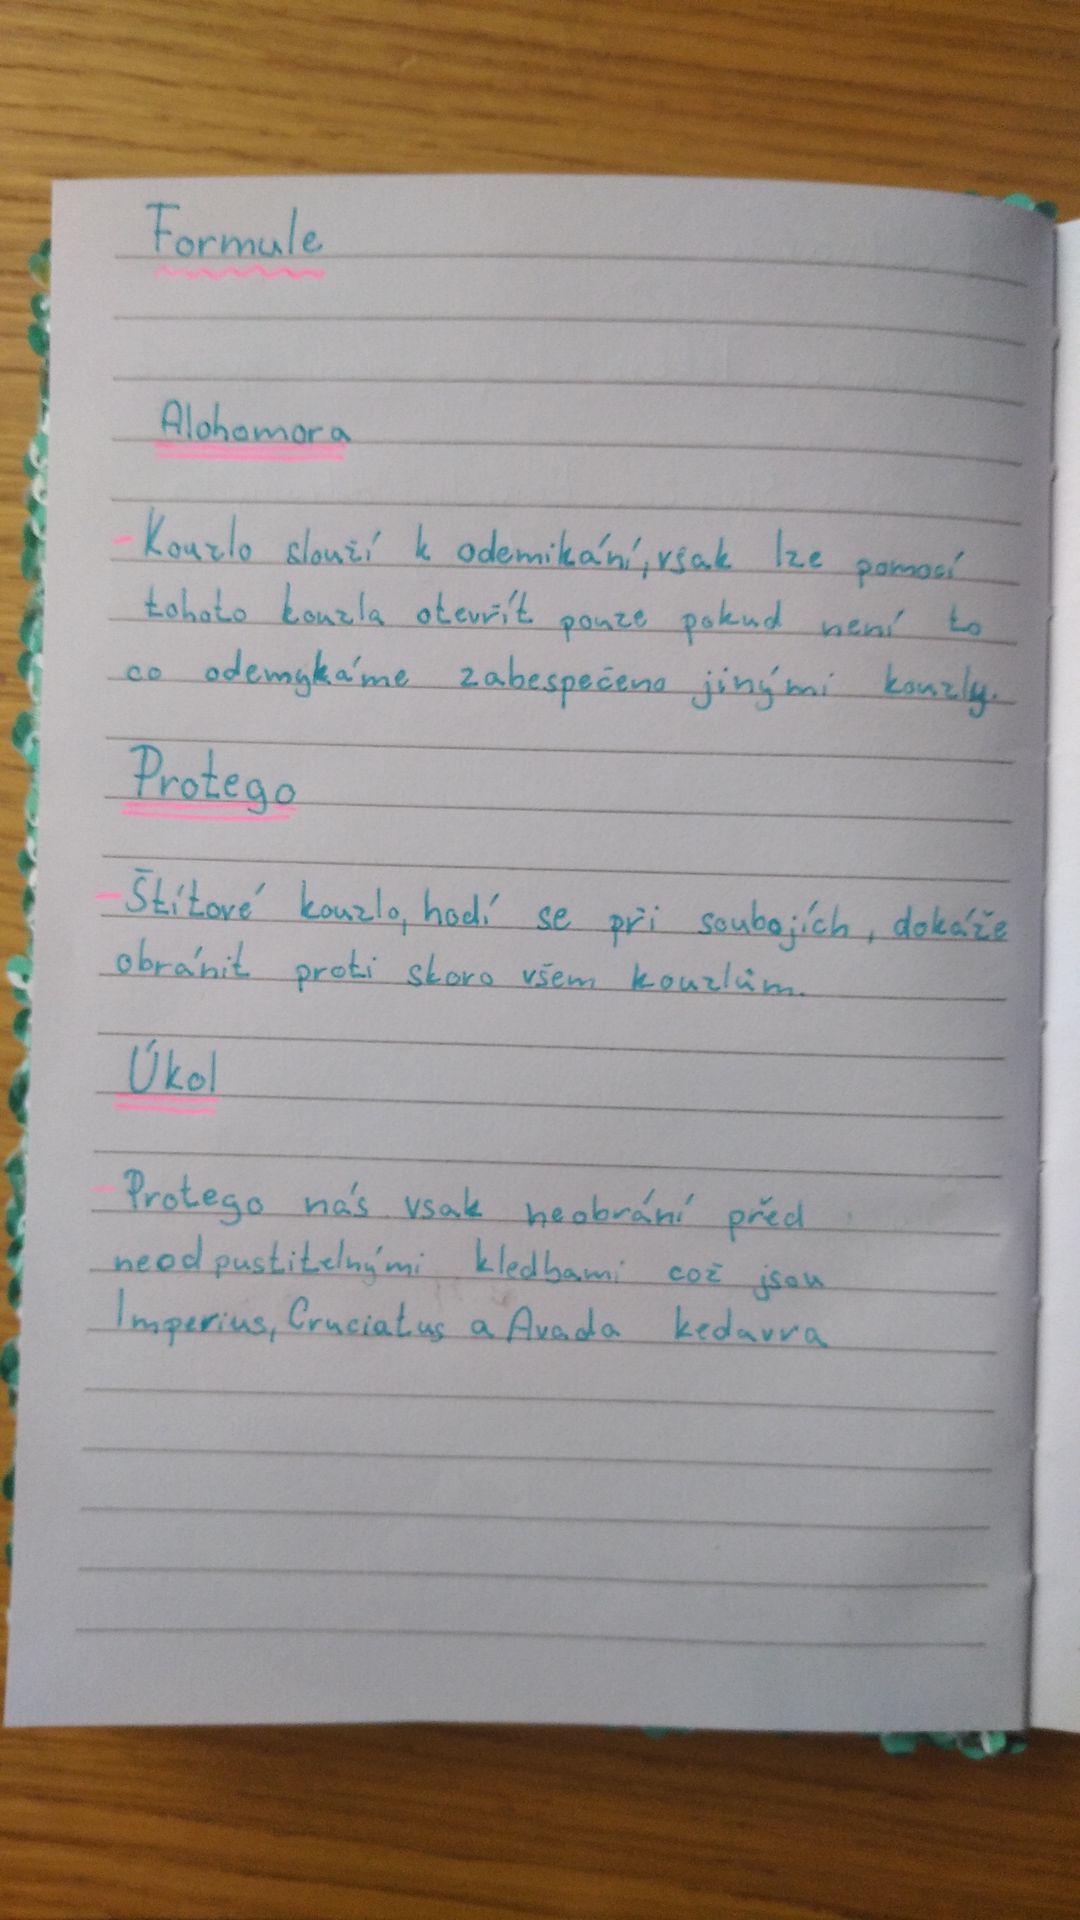 Formule
Alohomora
- Kouzlo slouží k odemikání, však lze pomocí
tohoto kouzla otevřít pouze pokud není to
co odemykáme zabespečeno jinými kouzly.
Protego
- Štítové kouzlo, hodí se při soubojích, dokáže
obránit proti skoro všem kouzlům.
Úkol
- Protego nás vsak neobrání před
neodpustitelnými kledbami což jsou
Imperius, Cruciatus a Avada kedavra